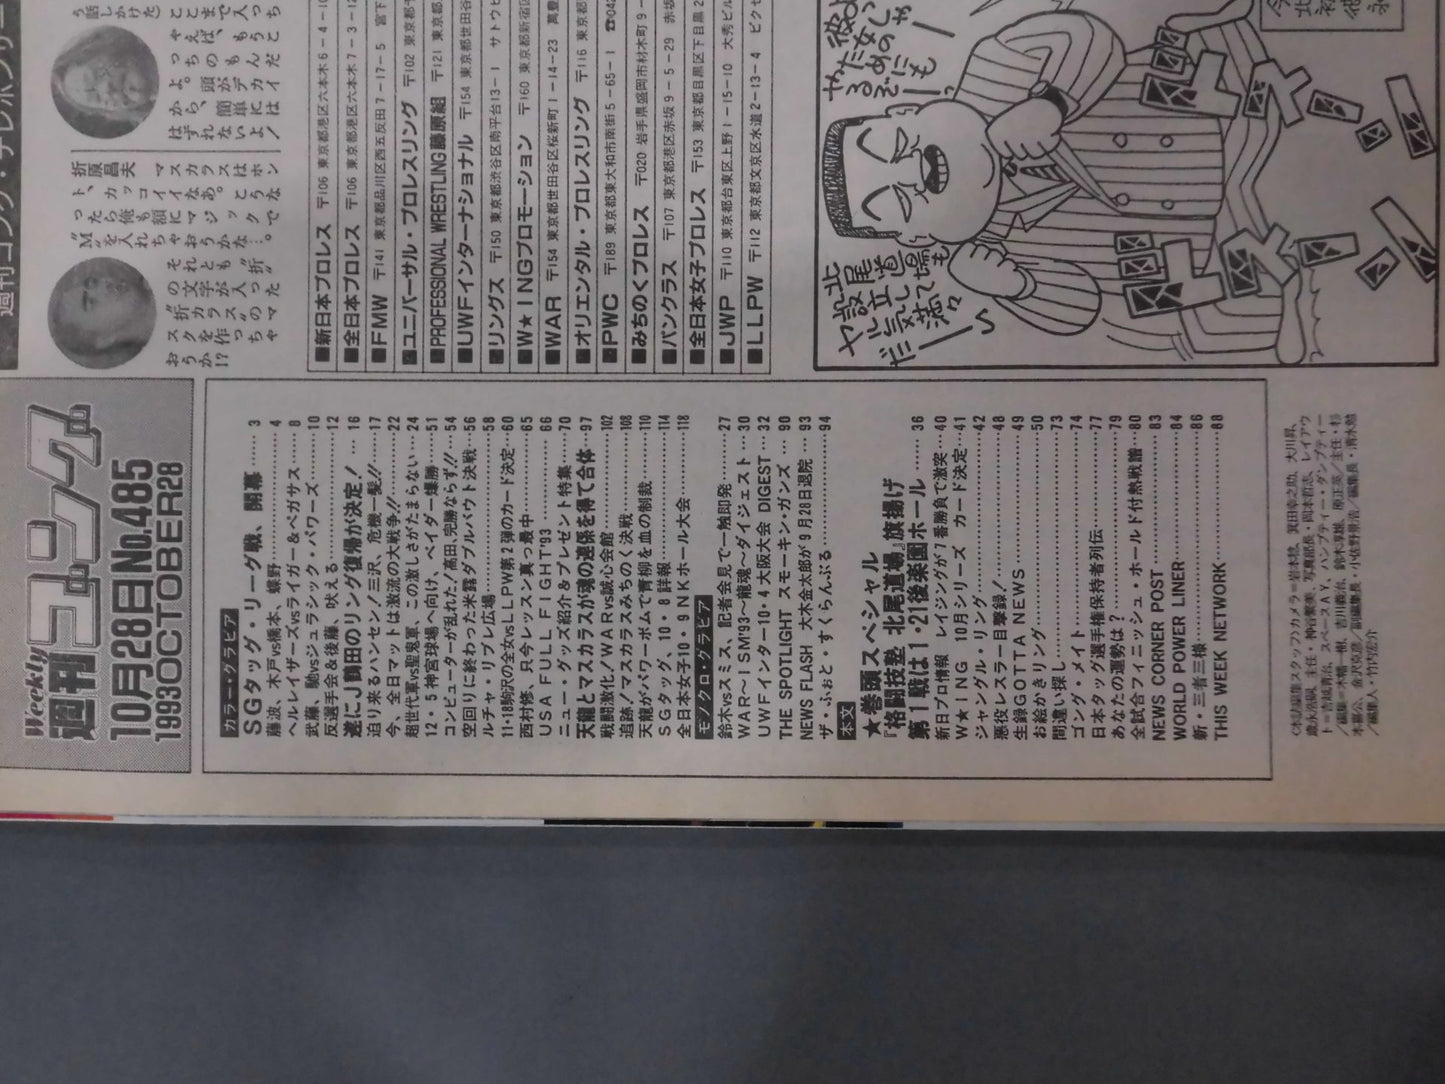 Weekly
週刊ゴング
10月28日No.485
1993OCTOBER28
カラー・グラビア
SGタッグ・リーグ戦、開幕……3
藤波、木戸vs橋本、蝶野……4
ヘルレイザーズvsライガー&ペガサス……8
武藤、馳vsジュラシック・パワーズ……10
反選手会&後藤、吠える……12
遂にJ鶴田のリング復帰が決定!……16
迫り来るハンセン!三沢、危機一髪!!……17
今、全日マットは激流の大戦争!!……22
超世代軍vs聖鬼軍、この激しさがたまらない……24
12・5神宮球場へ向け、ベイダー爆勝……51
コンピューターが乱れた!高田、完勝ならず!!……54
空回りに終わった米露ダブルバウト決戦……56
ルチャ・リブレ広場……58
11・18駒沢の全女vsLLPW第2弾のカード決定……60
西村修、只今レッスン真っ最中……65
USA FULL FIGHT'93……66
ニュー・グッズ紹介&プレゼント特集……70
天龍とマスカラスが魂の連係を得て合体……97
戦闘激化!WARvs誠心会館……102
追跡!マスカラスみちのく決戦……108
天龍がパワーボムで青柳を血の制裁……110
SGタッグ、10・8詳報……114
全日本女子10・9NKホール大会……118
モノクロ・グラビア
鈴木vsスミス、記者会見で一触即発……27
WAR〜ISM'93〜龍魂〜ダイジェスト……30
UWFインター10・4大阪大会 DIGEST……32
THE SPOTLIGHT スモーキン・ガンズ……90
NEWS FLASH 大木金太郎が9月28日退院……93
ザ・ふぉと・すくらんぶる……94
本文
★巻頭スペシャル
『格闘技塾 北尾道場』旗揚げ
第1戦は1・21後楽園ホール……36
新日プロ情報 レイジングが7番勝負で激突……40
W★ING 10月シリーズ カード決定……41
ジャングル・リング……42
悪役レスラー目撃録!……48
生録GOTTA NEWS……49
お絵かきリング……50
間違い探し……73
ゴング・メイト……74
日本タッグ選手権保持者列伝……77
あなたの運勢は?……79
全試合フィニッシュ・ホールド付熱戦譜……80
NEWS CORNER POST……83
WORLD POWER LINER……84
新・三者三様……86
THIS WEEK NETWORK……88
■新日本プロレス 〒106 東京都港区六本木6-4-10
■全日本プロレス 〒106 東京都港区六本木7-3-12
■FMW 〒141 東京都品川区西五反田7-17-5
■ユニバーサル・プロレスリング 〒102
■PROFESSIONAL WRESTLING 藤原組 〒121
■UWFインターナショナル 〒154 東京都世田谷
■リングス 〒150 東京都渋谷区南平台13-1
■W★INGプロモーション 〒160 東京都新宿区
■WAR 〒154 東京都世田谷区桜新町1-14-23
■オリエンタル・プロレスリング 〒116
■PWC 〒189 東京都東大和市南街5-65-1
■みちのくプロレス 〒020 岩手県盛岡市材木町9-
■パンクラス 〒107 東京都港区赤坂9-5-29
■全日本女子プロレス 〒153 東京都目黒区下目黒2
■JWP 〒110 東京都台東区上野1-15-10
■LLPW 〒112 東京都文京区水道2-13-4
折原昌夫
マスカラスはホント、カッコイイなあ。とうなったら俺も額にマジックで"M"を入れちゃおうかな…。
それとも"折"の文字が入った"折カラス"のマスクを作っちゃおうか!?